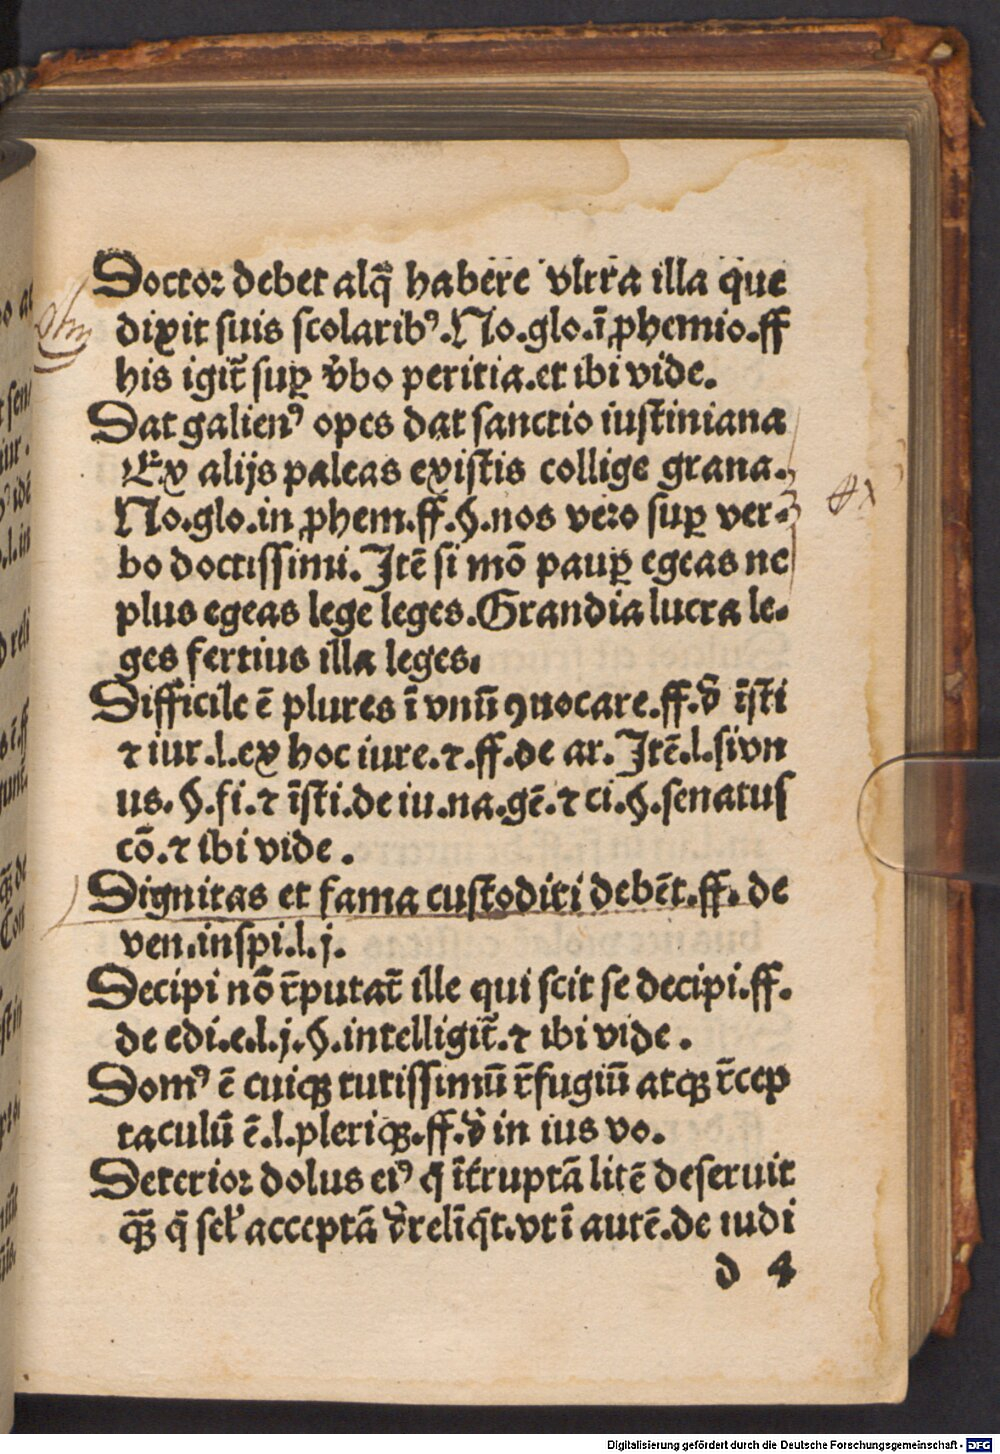 Doctor debet alq̃ habere vltra illa que
dixit suis scolaribꝰ. No. glo. ī ꝓhemio. ff
his igit̃ suꝑ v̄bo peritia. et ibi vide.
Dat galienꝰ opes dat sanctio iustiniana
Ex alijs paleas existis collige grana.
No. glo. in ꝓhem. ff. §. nos vero suꝑ ver-
bo doctissimi. Itē si mō pauꝑ egeas ne
plus egeas lege leges. Grandia lucra le-
ges fertius illa leges.
Difficile ē plures ī vnū ꝯuocare. ff. d̄ īsti
⁊ iur. l. ex hoc iure. ⁊. ff. de ar. Itē. l. si vn
us. §. fi. ⁊ īsti. de iu. na. gē. ⁊ ci. §. senatus
cō. ⁊ ibi vide.
Dignitas et fama custodiri debēt. ff. de
ven. inspi. l. j.
Decipi nō r̄putat̃ ille qui scit se decipi. ff.
de edi. e. l. j. §. intelligit̃. ⁊ ibi vide.
Domꝰ ē cuiqꝫ tutissimū r̄fugiū atqꝫ r̄cep
taculū ē. l. pleriqꝫ. ff. d̄ in ius vo.
Deterior dolus eiꝰ q̄ īt̄ruptā litē deseruit
qꝫ̄ q̄ sel̄ acceptā d̄relīq̄t. vt ī autē. de iudi
d 4
Digitalisierung gefördert durch die Deutsche Forschungsgemeinschaft - DFG